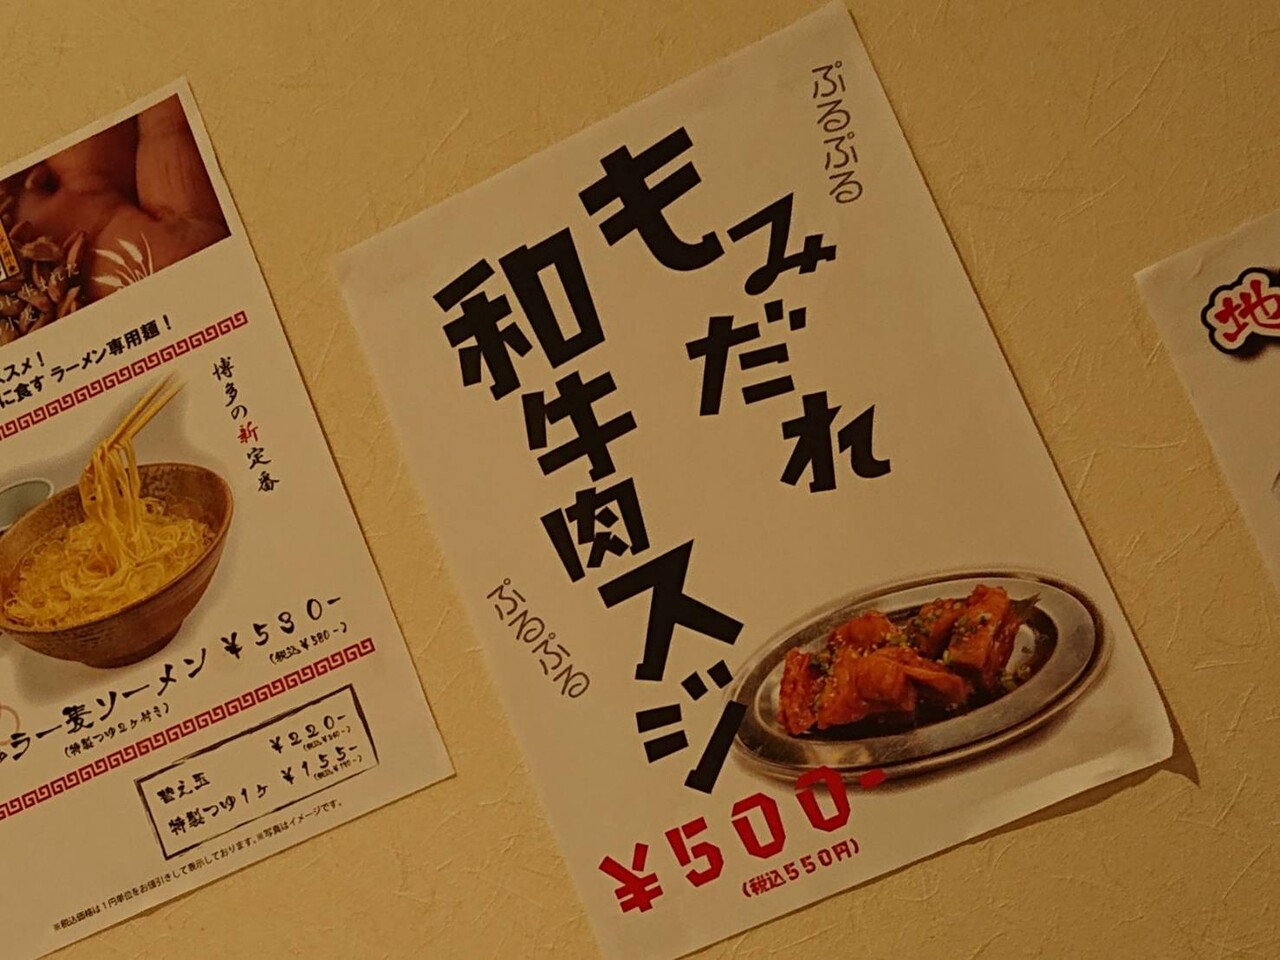 ぷるぷる
もみだれ
和牛肉スジ
ぷるぷる
¥500-
(税込550円)
に食す ラーメン専用麺！
博多の新定番
ラー麦ソーメン ¥530-
(特製つゆ2ヶ付き)
替え玉 ¥220-
特製つゆ1ヶ ¥155-
※税込価格は1円単位をお値引きして表示しております。※写真はイメージです。
地